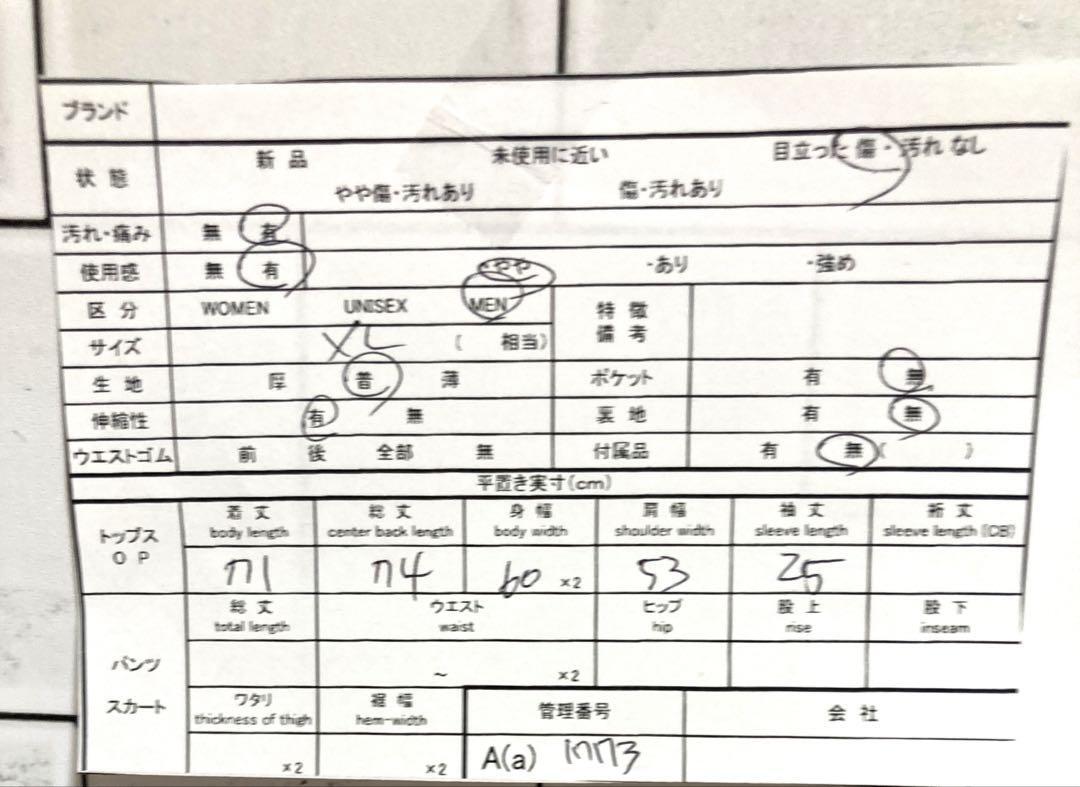 ブランド
状態 新品 未使用に近い 目立った傷・汚れなし
やや傷・汚れあり 傷・汚れあり
汚れ・痛み 無 有
使用感 無 有 ・やや ・あり ・強め
区分 WOMEN UNISEX MEN 特徴
備考
サイズ XL ( 相当)
生地 厚 普 薄 ポケット 有 無
伸縮性 有 無 裏地 有 無
ウエストゴム 前 後 全部 無 付属品 有 無 ( )
平置き実寸(cm)
トップス
OP
着丈 総丈 身幅 肩幅 袖丈 裄丈
body length center back length body width shoulder width sleeve length sleeve length (CB)
71 74 60 ×2 53 25
総丈 ウエスト ヒップ 股上 股下
total length waist hip rise inseam
パンツ
~ ×2
スカート
ワタリ 裾幅 管理番号 会社
thickness of thigh hem-width
×2 ×2 A(a) 1773